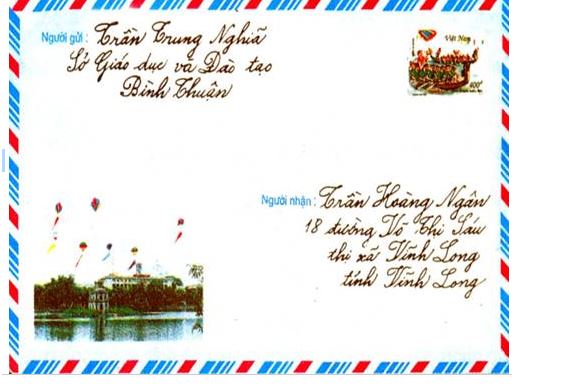 Người gửi : Trần Trung Nghĩa
Sở Giáo dục và Đào tạo
Bình Thuận
Việt Nam
400đ
Người nhận : Trần Hoàng Ngân
18 đường Võ Thị Sáu
thị xã Vĩnh Long
tỉnh Vĩnh Long